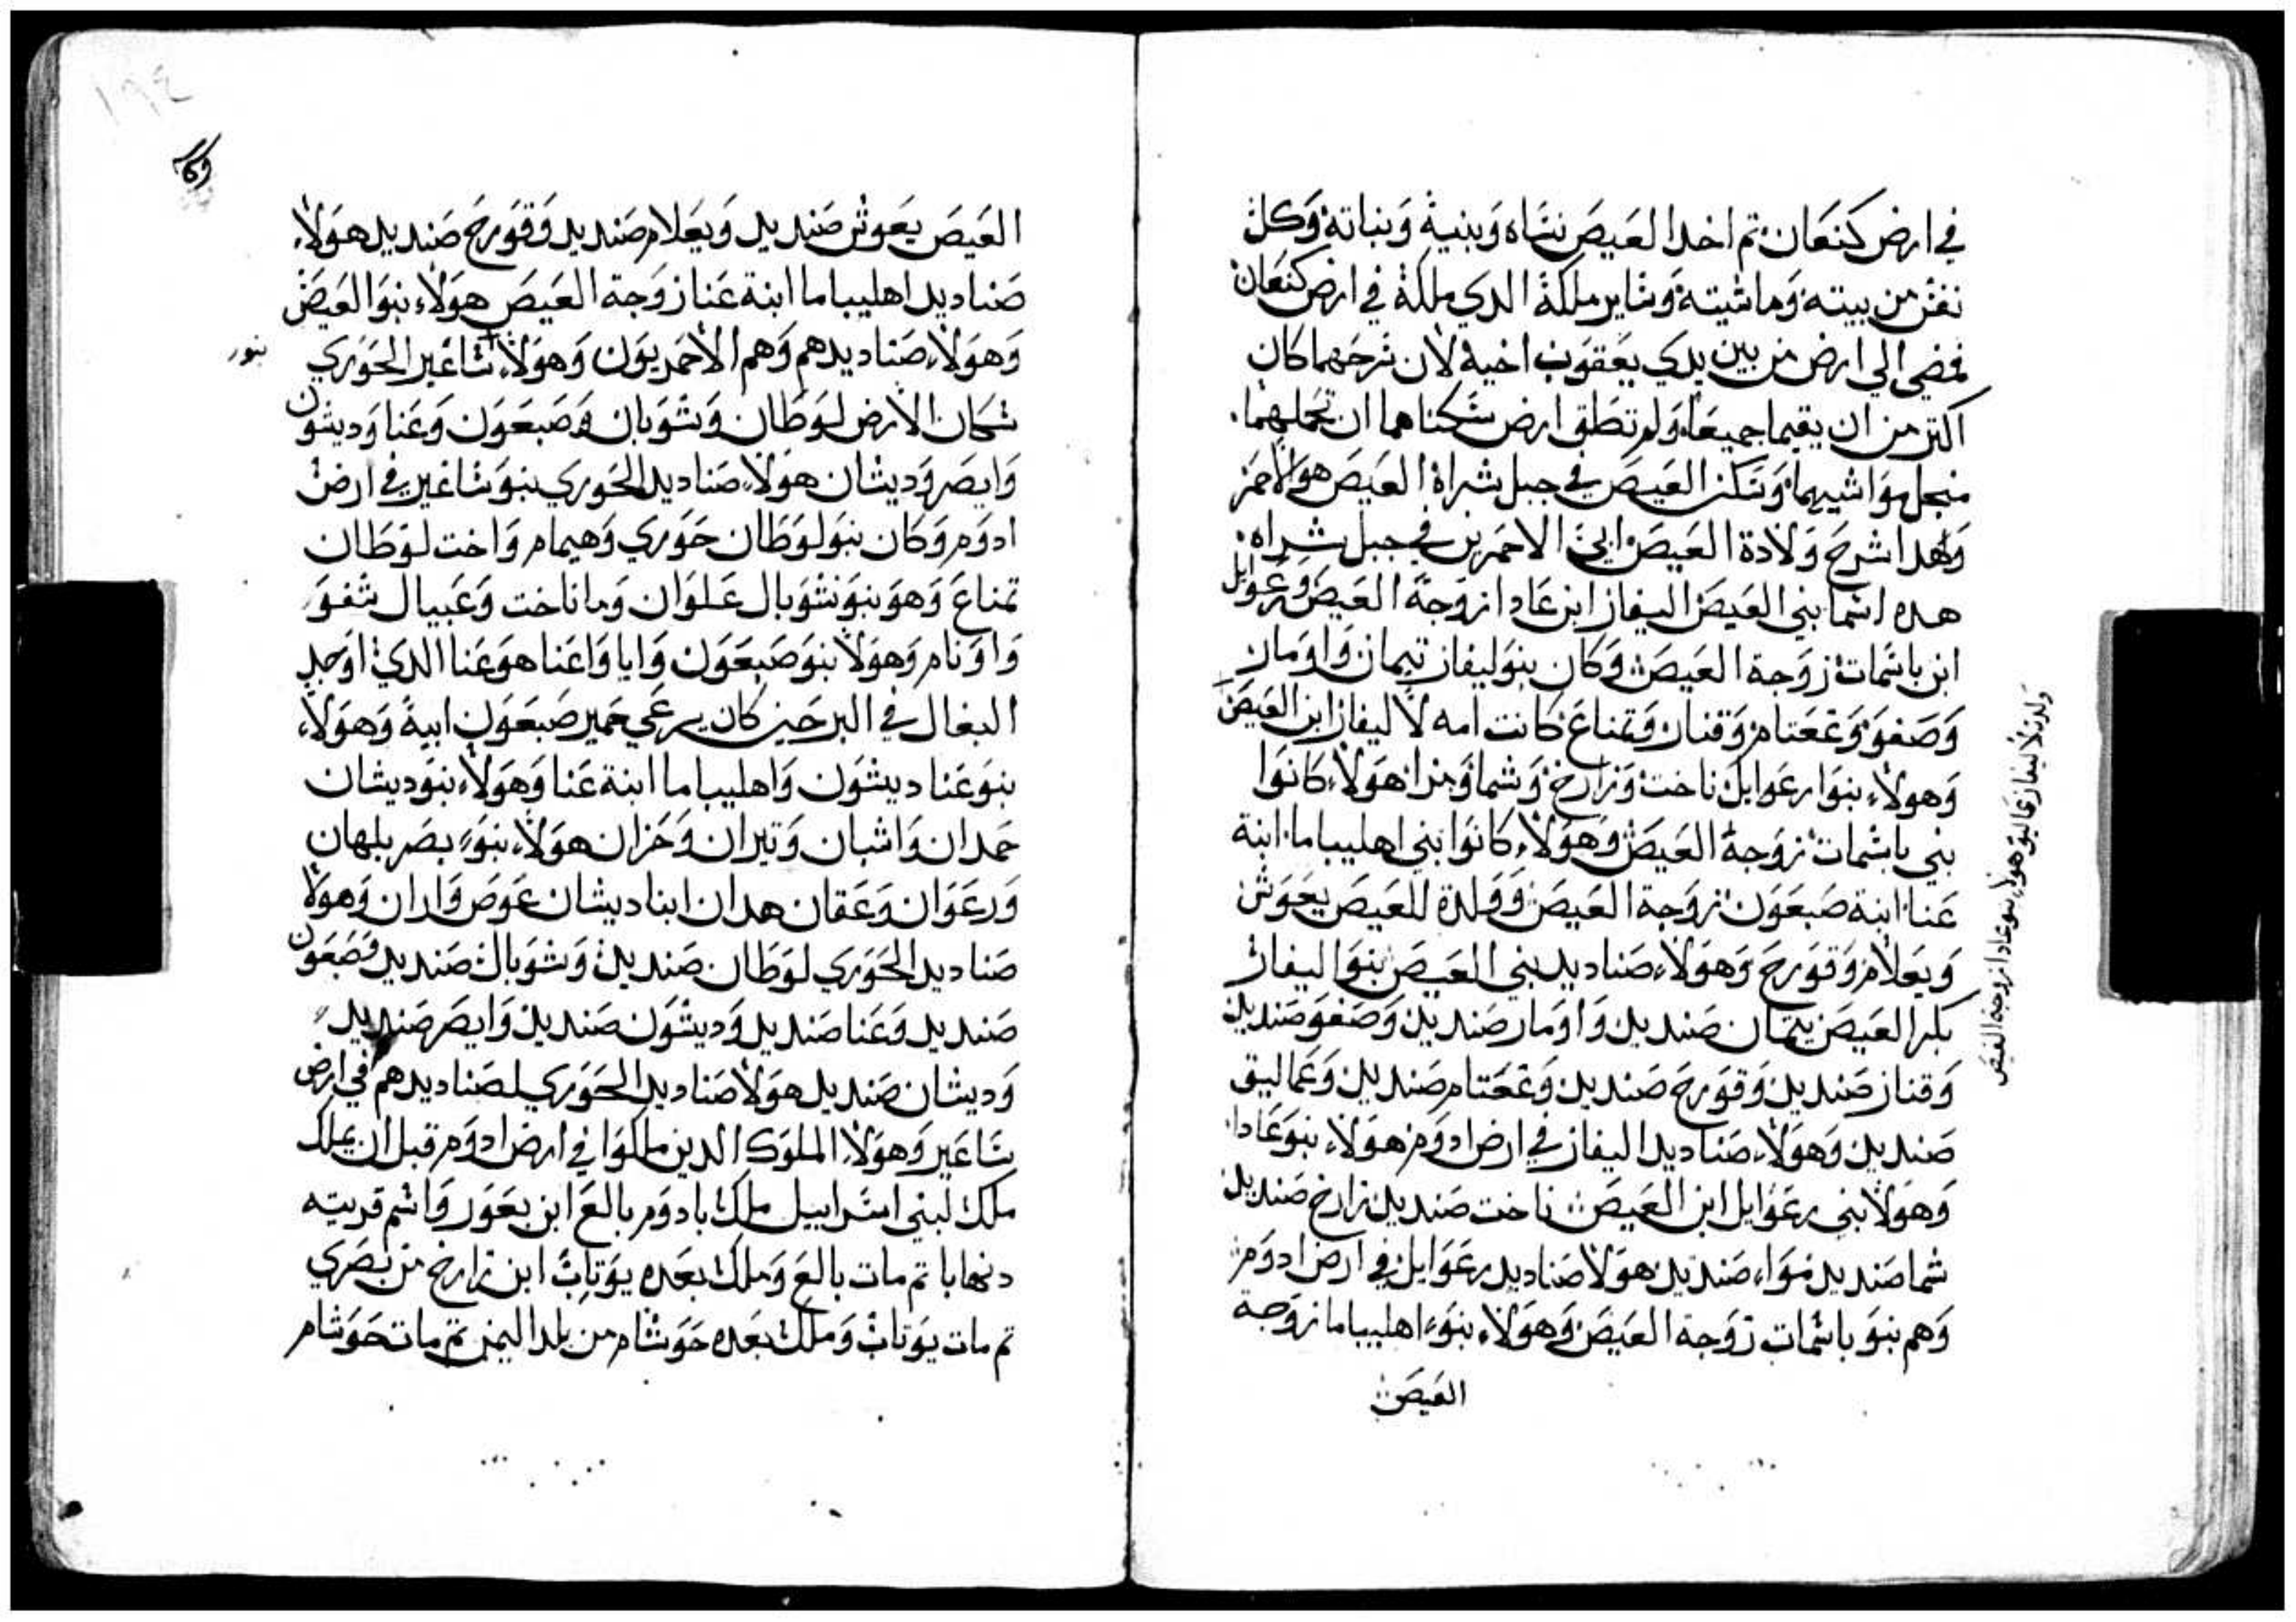 في ارض كنعان ثم اخد العيص نساه وبنيه وبناته وكل
نفس من بيته وماشيته وساير ملكة الدي ملكة في ارض كنعان
فمضي الي ارض من بين يدي يعقوب اخيه لان سرحهما كان
اكتر من ان يقيما جميعا ولم تطق ارض سكناهما ان تحملهما
منجل مواشيهما وسكن العيص في جبل شراة العيص هو الاحمر
وهدا شرح ولادة العيص ابي الاحمرين في جبل شراه
هده اسما بني العيص اليفاز ابن عادا زوجة العيص ورعوايل
ابن باسمات زوجة العيص وكان بنو ليفاز تيمان واومار
وصفو وغعتام وقناز وتمناع كانت امه لاليفاز ابن العيص
ولدت لاليفاز عماليق هولاء بنو عادا زوجة العيص
وهولاء بنوا رعوايل ناخت وزارخ وشما ومزا هولاء كانوا
بني باسمات زوجة العيص وهولاء كانوا بني اهليباما ابنة
عنا ابنة صبعون زوجة العيص وولدة للعيص يعوش
ويعلام وقورح وهولاء صناديد بني العيص بنوا اليفاز
بكر العيص تيمان صنديد واومار صنديد وصفو صنديد
وقناز صنديد وقورح صنديد وغعتام صنديد وعماليق
صنديد وهولاء صناديد اليفاز في ارض ادوم هولاء بنو عادا
وهولا بني رعوايل ابن العيص ناخت صنديد زارخ صنديد
شما صنديد مزا صنديد هولا صناديد رعوايل في ارض ادوم
وهم بنو باسمات زوجة العيص وهولاء بنو اهليباما زوجة
العيص
١٩٤
العيص يعوش صنديد ويعلام صنديد وقورح صنديد هولاء
صناديد اهليباما ابنة عنا زوجة العيص هولاء بنو العيص
وهولاء صناديدهم وهم الاحمريون وهولاء ساغير الحوري
بنور
سكان الارض لوطان وشوبان وصبعون وعنا وديشون
وايصر وديشان هولاء صناديد الحوري بنو ساغير في ارض
ادوم وكان بنو لوطان حوري وهيمام واخت لوطان
تمناع وهو بنو شوبال علوان وماناخت وعيبال شفو
واونام وهولا بنو صبعون وايا واعنا هو عنا الدي اوجد
البغال في البر حين كان يرعي حمير صبعون ابية وهولاء
بنو عنا ديشون واهليباما ابنة عنا وهولاء بنو ديشان
حمدان واشبان ويتران وخران هولاء بنو يصر بلهان
ورعوان وعقان هدان ابنا ديشان عوص واران وهولا
صناديد الحوري لوطان صنديد وشوبال صنديد وصبعون
صنديد وعنا صنديد وديشون صنديد وايصر صنديد
وديشان صنديد هولا صناديد الحوري لصناديدهم في ارض
ساغير وهولاء الملوك الدين ملكوا في ارض ادوم قبل ان يملك
ملك لبني اسراييل ملك بادوم بالع ابن بعور واسم قريته
دنهابا تم مات بالع وملك بعده يوباب ابن زارخ من بصري
تم مات يوباب وملك بعده حوشام من بلد اليمن تم مات حوشام